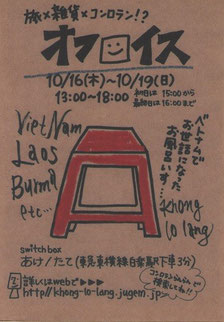 旅×雑貨×コンロテン!?
オフロイス
10/16(木)~10/19(日)
13:00~18:00
初日は 15:00から
最終日は 16:00まで
VietNam
Laos
Burma
etc…
ベトナムで
お世話になった
お風呂いす…
khong
lo lang
switch box
あけ/たて(東急東横線白楽駅下車3分)
詳しくはwebで▶▶▶
http://khong-lo-lang.jugem.jp
コンロンらんらん
検索してね!!